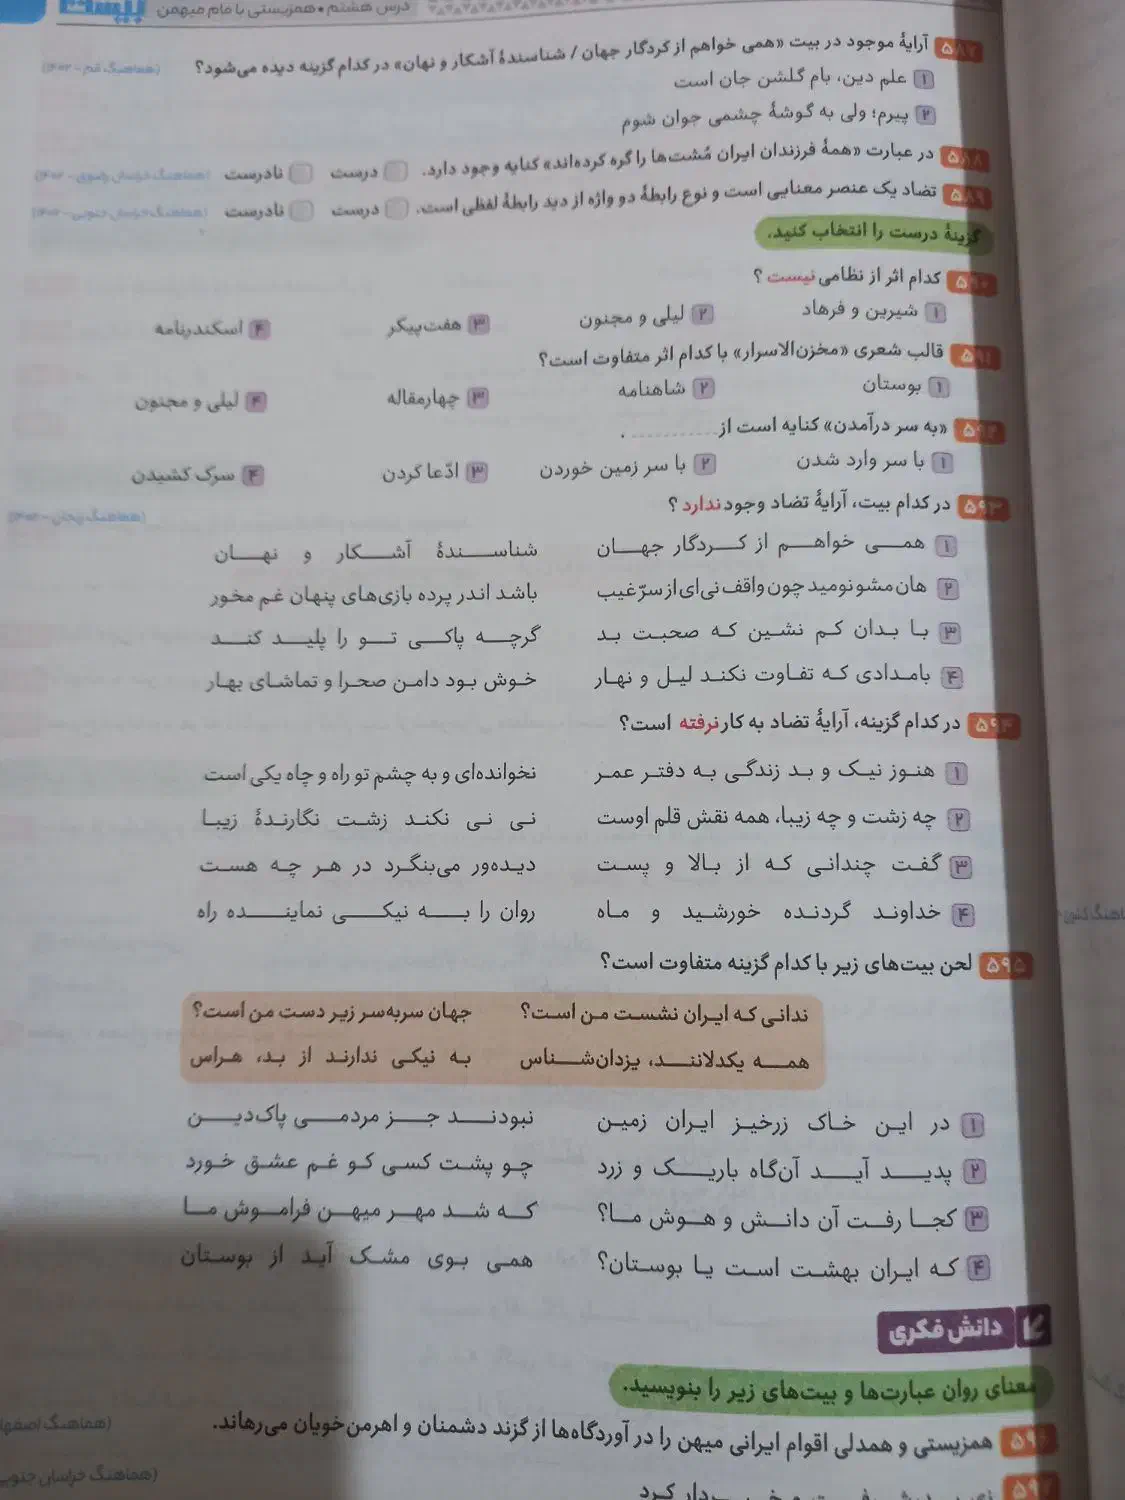 درس هشتم • همزیستی با مام میهن بیست
۵۸۷ آرایهٔ موجود در بیت «همی خواهم از کردگار جهان / شناسندهٔ آشکار و نهان» در کدام گزینه دیده می‌شود؟ (هماهنگ قم - ۱۴۰۲)
۱ علم دین، بام گلشن جان است
۲ پیرم؛ ولی به گوشهٔ چشمی جوان شوم
۵۸۸ در عبارت «همهٔ فرزندان ایران مُشت‌ها را گره کرده‌اند» کنایه وجود دارد. درست نادرست (هماهنگ خراسان رضوی - ۱۴۰۲)
۵۸۹ تضاد یک عنصر معنایی است و نوع رابطهٔ دو واژه از دید رابطهٔ لفظی است. درست نادرست (هماهنگ خراسان جنوبی - ۱۴۰۲)
گزینهٔ درست را انتخاب کنید.
۵۹۰ کدام اثر از نظامی نیست؟
۱ شیرین و فرهاد ۲ لیلی و مجنون ۳ هفت‌پیکر ۴ اسکندرنامه
۵۹۱ قالب شعری «مخزن‌الاسرار» با کدام اثر متفاوت است؟
۱ بوستان ۲ شاهنامه ۳ چهارمقاله ۴ لیلی و مجنون
۵۹۲ «به سر درآمدن» کنایه است از ............ .
۱ با سر وارد شدن ۲ با سر زمین خوردن ۳ ادّعا کردن ۴ سرک کشیدن
۵۹۳ در کدام بیت، آرایهٔ تضاد وجود ندارد؟ (هماهنگ زنجان - ۱۴۰۲)
۱ همی خواهم از کردگار جهان شناسندهٔ آشکار و نهان
۲ هان مشو نومید چون واقف نی‌ای از سرّ غیب باشد اندر پرده بازی‌های پنهان غم مخور
۳ با بدان کم نشین که صحبت بد گرچه پاکی تو را پلید کند
۴ بامدادی که تفاوت نکند لیل و نهار خوش بود دامن صحرا و تماشای بهار
۵۹۴ در کدام گزینه، آرایهٔ تضاد به کار نرفته است؟
۱ هنوز نیک و بد زندگی به دفتر عمر نخوانده‌ای و به چشم تو راه و چاه یکی است
۲ چه زشت و چه زیبا، همه نقش قلم اوست نی نی نکند زشت نگارندهٔ زیبا
۳ گفت چندانی که از بالا و پست دیده‌ور می‌بنگرد در هر چه هست
۴ خداوند گردنده خورشید و ماه روان را به نیکی نماینده راه
۵۹۵ لحن بیت‌های زیر با کدام گزینه متفاوت است؟
ندانی که ایران نشست من است؟ جهان سربه‌سر زیر دست من است؟
همه یکدلانند، یزدان‌شناس به نیکی ندارند از بد، هراس
۱ در این خاک زرخیز ایران زمین نبودند جز مردمی پاک‌دین
۲ پدید آید آن‌گاه باریک و زرد چو پشت کسی کو غم عشق خورد
۳ کجا رفت آن دانش و هوش ما؟ که شد مهر میهن فراموش ما
۴ که ایران بهشت است یا بوستان؟ همی بوی مشک آید از بوستان
دانش فکری
معنای روان عبارت‌ها و بیت‌های زیر را بنویسید.
۵۹۶ همزیستی و همدلی اقوام ایرانی میهن را در آوردگاه‌ها از گزند دشمنان و اهرمن‌خویان می‌رهاند. (هماهنگ اصفهان
۵۹۷ (هماهنگ خراسان جنوبی